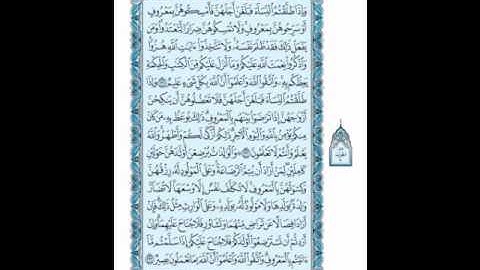 وَإِذَا طَلَّقْتُمُ ٱلنِّسَآءَ فَبَلَغْنَ أَجَلَهُنَّ فَأَمْسِكُوهُنَّ بِمَعْرُوفٍ
أَوْ سَرِّحُوهُنَّ بِمَعْرُوفٍ وَلَا تُمْسِكُوهُنَّ ضِرَارًا لِّتَعْتَدُوا۟ وَمَن
يَفْعَلْ ذَٰلِكَ فَقَدْ ظَلَمَ نَفْسَهُۥ وَلَا تَتَّخِذُوٓا۟ ءَايَٰتِ ٱللَّهِ هُزُوًا
وَٱذْكُرُوا۟ نِعْمَتَ ٱللَّهِ عَلَيْكُمْ وَمَآ أَنزَلَ عَلَيْكُم مِّنَ ٱلْكِتَٰبِ وَٱلْحِكْمَةِ
يَعِظُكُم بِهِۦ وَٱتَّقُوا۟ ٱللَّهَ وَٱعْلَمُوٓا۟ أَنَّ ٱللَّهَ بِكُلِّ شَىْءٍ عَلِيمٌ وَإِذَا
طَلَّقْتُمُ ٱلنِّسَآءَ فَبَلَغْنَ أَجَلَهُنَّ فَلَا تَعْضُلُوهُنَّ أَن يَنكِحْنَ
أَزْوَٰجَهُنَّ إِذَا تَرَٰضَوْا۟ بَيْنَهُم بِٱلْمَعْرُوفِ ذَٰلِكَ يُوعَظُ بِهِۦ مَن كَانَ
مِنكُمْ يُؤْمِنُ بِٱللَّهِ وَٱلْيَوْمِ ٱلْءَاخِرِ ذَٰلِكُمْ أَزْكَىٰ لَكُمْ وَأَطْهَرُ وَٱللَّهُ
يَعْلَمُ وَأَنتُمْ لَا تَعْلَمُونَ وَٱلْوَٰلِدَٰتُ يُرْضِعْنَ أَوْلَٰدَهُنَّ حَوْلَيْنِ
كَامِلَيْنِ لِمَنْ أَرَادَ أَن يُتِمَّ ٱلرَّضَاعَةَ وَعَلَى ٱلْمَوْلُودِ لَهُۥ رِزْقُهُنَّ
وَكِسْوَتُهُنَّ بِٱلْمَعْرُوفِ لَا تُكَلَّفُ نَفْسٌ إِلَّا وُسْعَهَا لَا تُضَآرَّ
وَٰلِدَةٌۢ بِوَلَدِهَا وَلَا مَوْلُودٌ لَّهُۥ بِوَلَدِهِۦ وَعَلَى ٱلْوَارِثِ مِثْلُ ذَٰلِكَ فَإِنْ
أَرَادَا فِصَالًا عَن تَرَاضٍ مِّنْهُمَا وَتَشَاوُرٍ فَلَا جُنَاحَ عَلَيْهِمَا وَإِنْ
أَرَدتُّمْ أَن تَسْتَرْضِعُوٓا۟ أَوْلَٰدَكُمْ فَلَا جُنَاحَ عَلَيْكُمْ إِذَا سَلَّمْتُم مَّآ
ءَاتَيْتُم بِٱلْمَعْرُوفِ وَٱتَّقُوا۟ ٱللَّهَ وَٱعْلَمُوٓا۟ أَنَّ ٱللَّهَ بِمَا تَعْمَلُونَ بَصِيرٌ